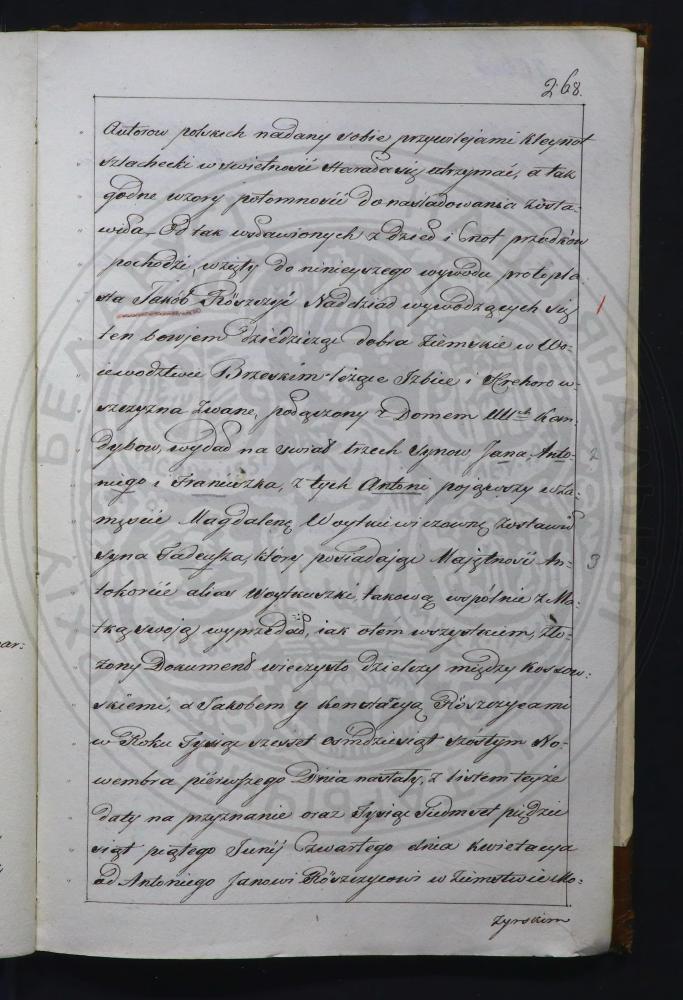 268.
Autorow polskich nadany sobie przywilejami Kleynot
szlachecki w swietność starała się utrzymać, a tak
godne wzory potomności do nasladowania zosta-
wiła. Od tak wsławionych z dzieł i Cnot przodków
pochodzi, wzięty do ninieyszego wywodu protopla-
sta Jakób Röszczyć Naddziad wywodzących się 1
ten bowiem dziedzicząc dobra Ziemskie w Wo-
iewodztwie Brzeskim leżące Izbice i Krehorow-
szczyzna zwane, połączony z Domem UUch Kan-
dybow, wydał na swiat trzech synow Jana, Anto- 2
niego i Franciszka, z tych Antoni pojąwszy w Za-
męście Magdalenę Woytkiewiczownę zostawił
syna Tadeusza, który posiadając Majętność An- 3
tokorcie alias Woytkuszki, takową wspólnie z Ma-
tką swoją wyprzedał, iak otém wszystkiem, zło-
żony Dokument wieczysto dzielczy między Kossow-
skiemi, a Jakobem y Konstacyą Röszczycami
w Roku Tysiąc szesset osmdziesiąt szostym No-
wembra pierwszego Dnia nastały, z listem teyże
daty na przyznanie oraz Tysiąc Siedmset pięćdzie
siąt piątego Junij Czwartego dnia Kwietacya
od Antoniego Janowi Röszczycowi w Ziemstwie Mo-
zyrskim